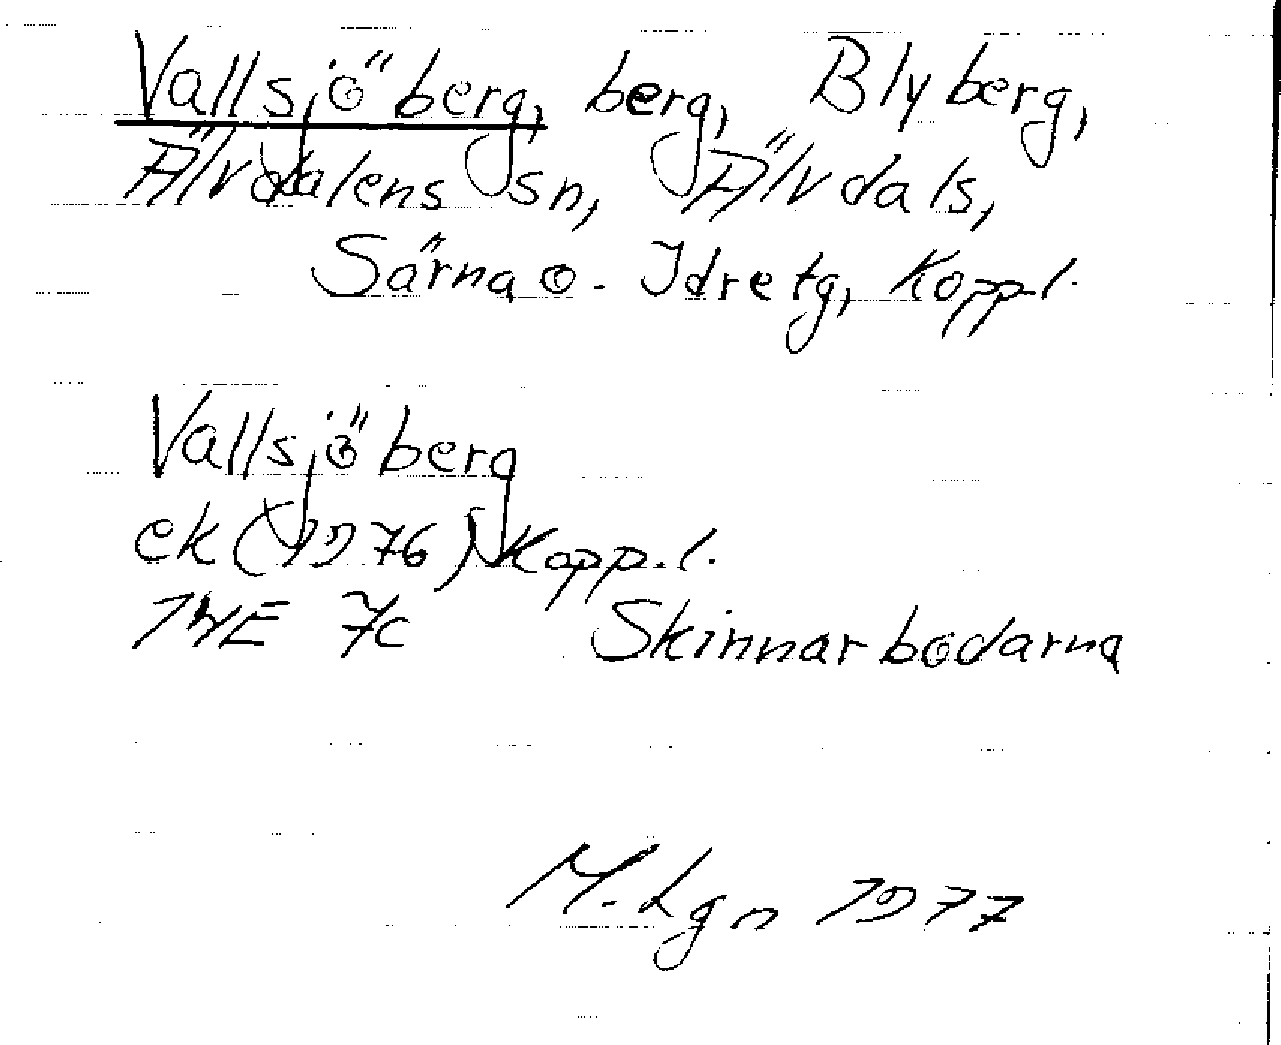 Vallsjöberg, berg, Blyberg,
Älvdalens sn, Älvdals,
Särna o. Idre tg, Kopp.l.
Vallsjöberg
ek (1976) Kopp.l.
14E 7c Skinnarbodarna
M. Lgn 1977